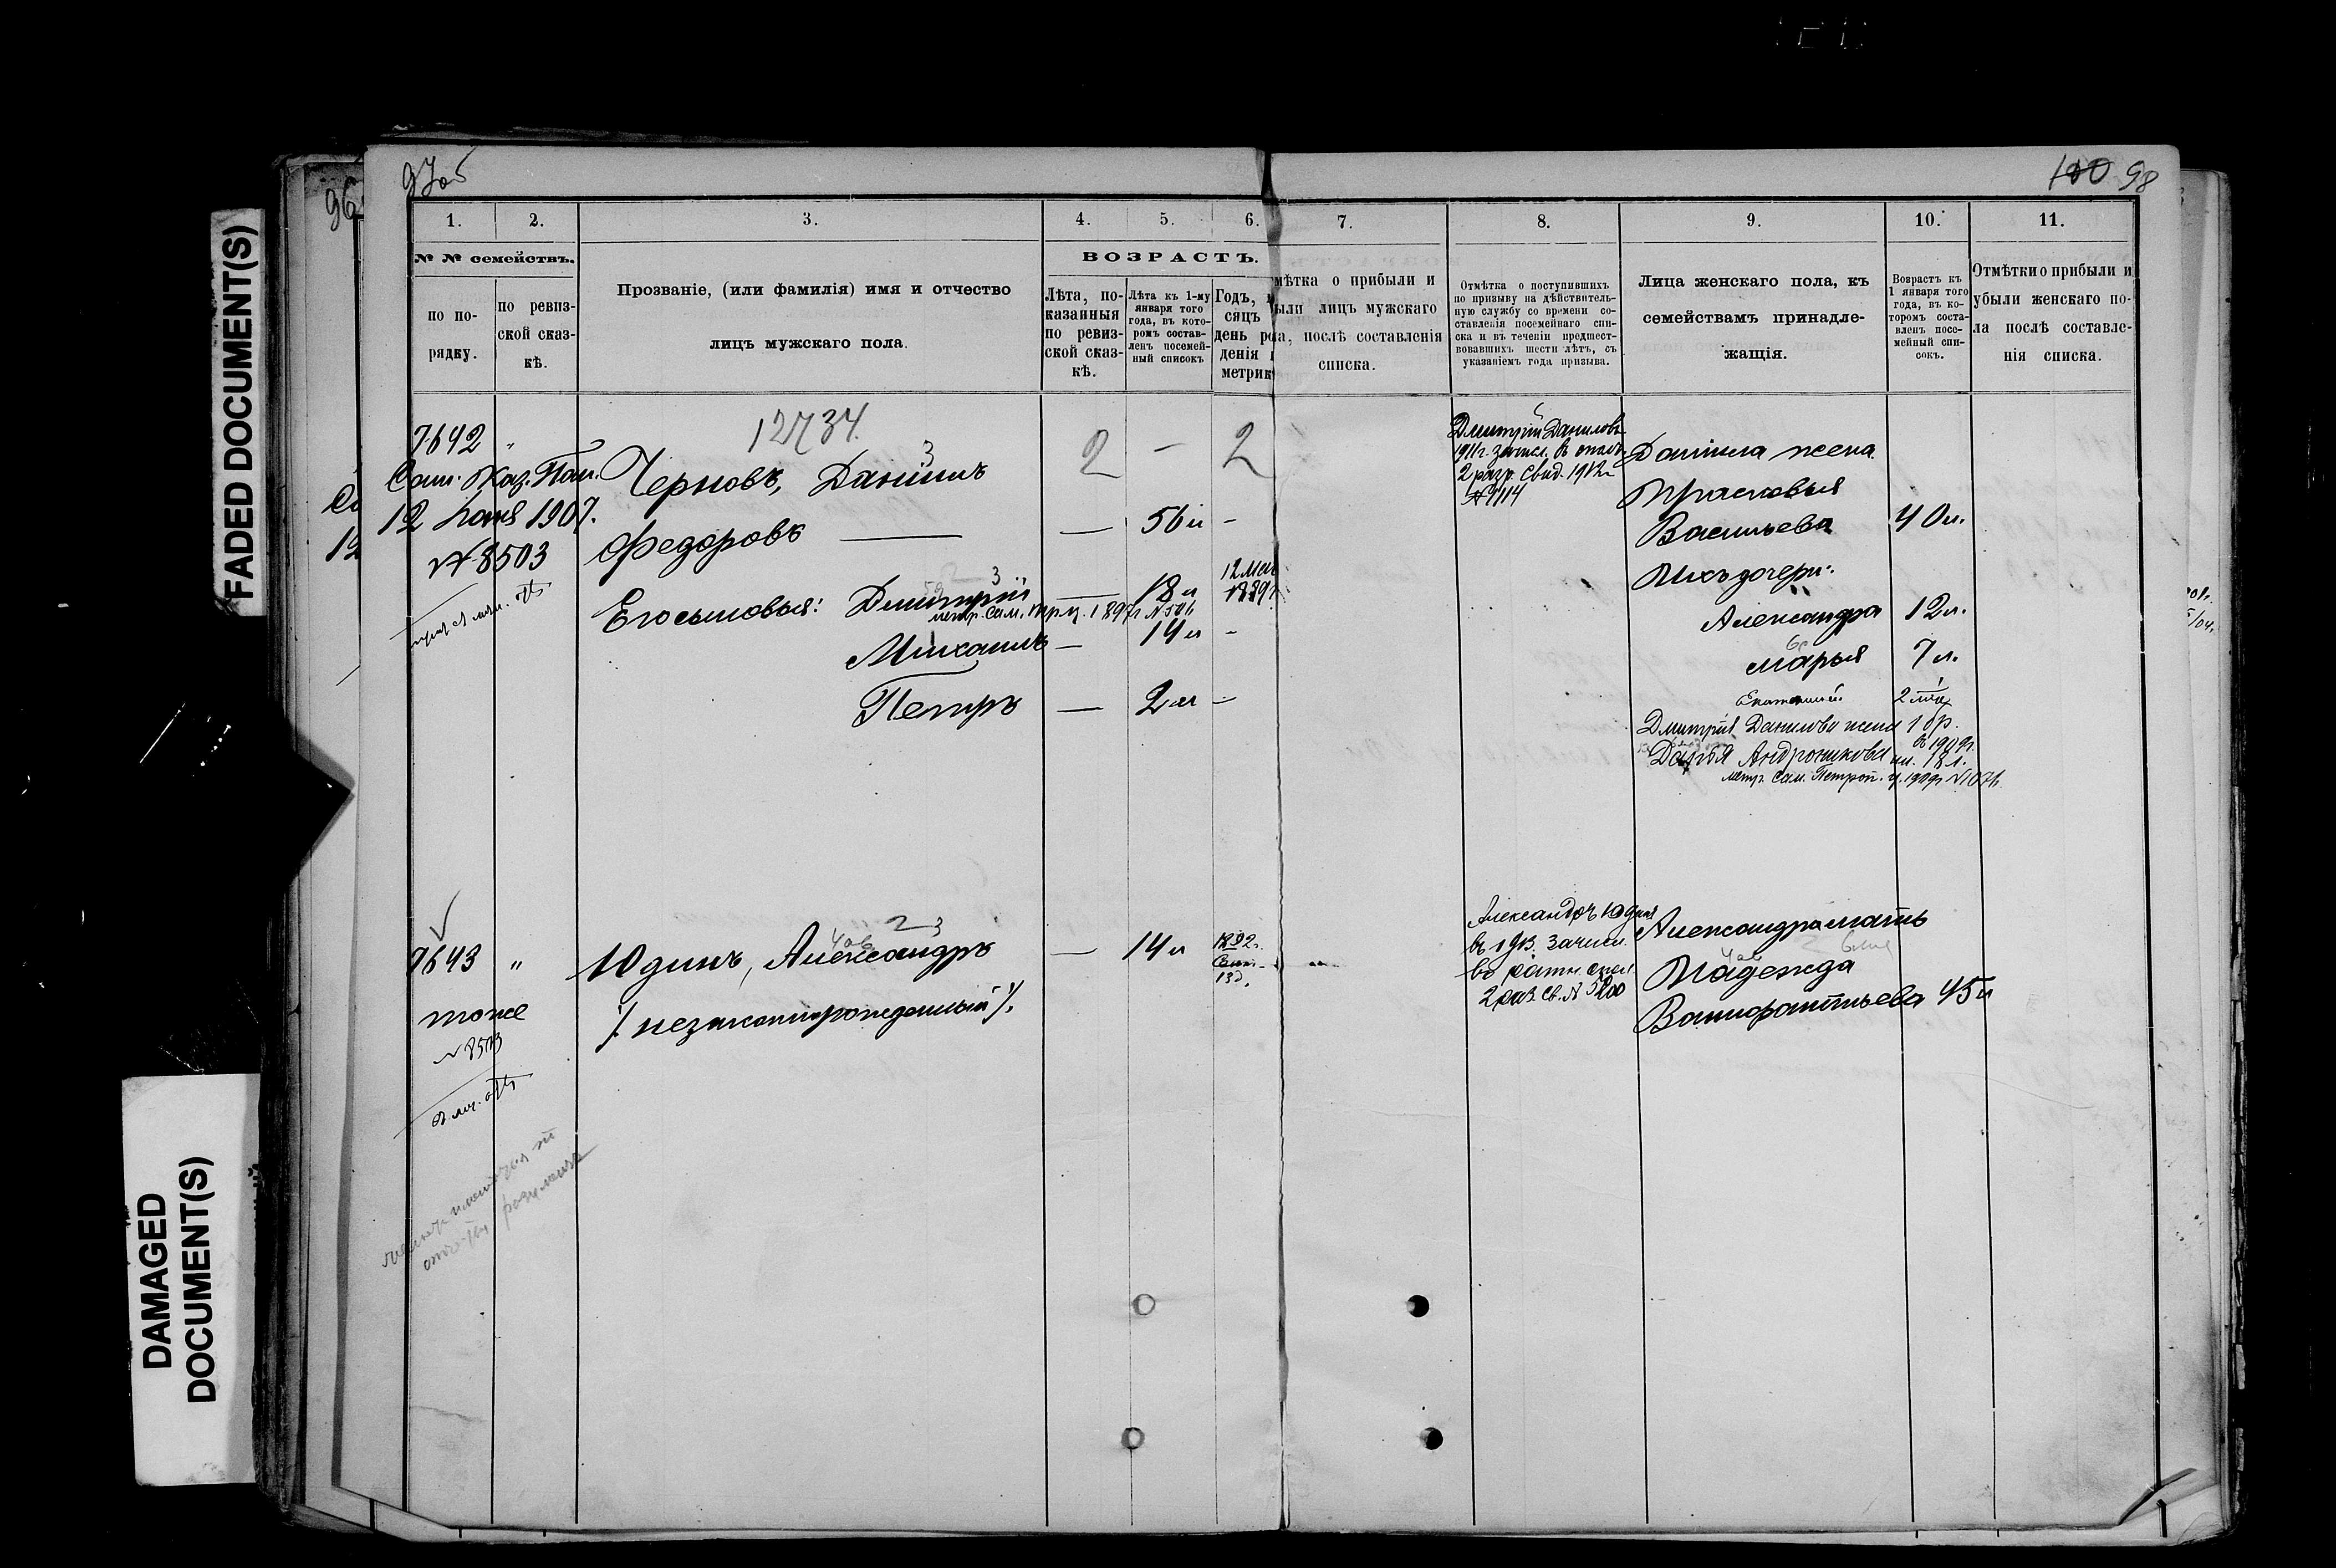 FADED DOCUMENT(S)
DAMAGED DOCUMENT(S)
97об
100 98
1. 2. 3. 4. 5. 6. 7. 8. 9. 10. 11.
№ № семействъ.
по по-
рядку.
по ревиз-
ской сказ-
кѣ.
Прозваніе, (или фамилія) имя и отчество
лицъ мужскаго пола.
ВОЗРАСТЪ.
Лѣта, по-
казанныя
по ревиз-
ской сказ-
кѣ.
Лѣта къ 1-му
января того
года, въ кото-
ромъ состав-
ленъ посемей-
ный списокъ
Годъ,
сяцъ
день ро
денія
метрик
мѣтка о прибыли и
были лицъ мужскаго
а, послѣ составленія
списка.
Отмѣтка о поступившихъ
по призыву на дѣйствитель-
ную службу со времени со-
ставленія посемейнаго спи-
ска и въ теченіи предшест-
вовавшихъ шести лѣтъ, съ
указаніемъ года призыва.
Лица женскаго пола, къ
семействамъ принадле-
жащія.
Возрастъ къ
1 января того
года, въ ко-
торомъ соста-
вленъ посе-
мейный спи-
сокъ.
Отмѣтки о прибыли и
убыли женскаго по-
ла послѣ составле-
нія списка.
7642 "
Сам. Каз. Пал.
12 1907.
№ 8503
12734.
Черновъ, Даніилъ 3
2 - 2
Федоровъ — — 56 л -
Его сыновья: Дмитрій 3 — 18 л 12 Мая 1889 г.
метр. Сам. 1897 г.
Михаилъ — 14 л -
Петръ — 2 л -
Дмитрій Даниловъ
1911 г. зачисл. в
2 разр. Свид. 1912 г.
№ 9114
Даніила жена
Прасковья
Васильева 40 л.
Ихъ дочери:
Александра 12 л.
Марья 7 л.
Дмитрія Данилова жена 1 бр.
в 1909 г.
Дарья Андроникова 18 л.
метр. Сам. Петроп. ц. 1909 г.
7643 "
тоже
№ 8503
Юдинъ, Александръ — 14 л 1892 г.
13 д.
/незаконнорожденный/.
Александръ Юдинъ
въ 1913. зачисл.
въ ратн. опол.
2 раз. Св. № 5200
Александра мать
Надежда
Вонифатьева 45 л